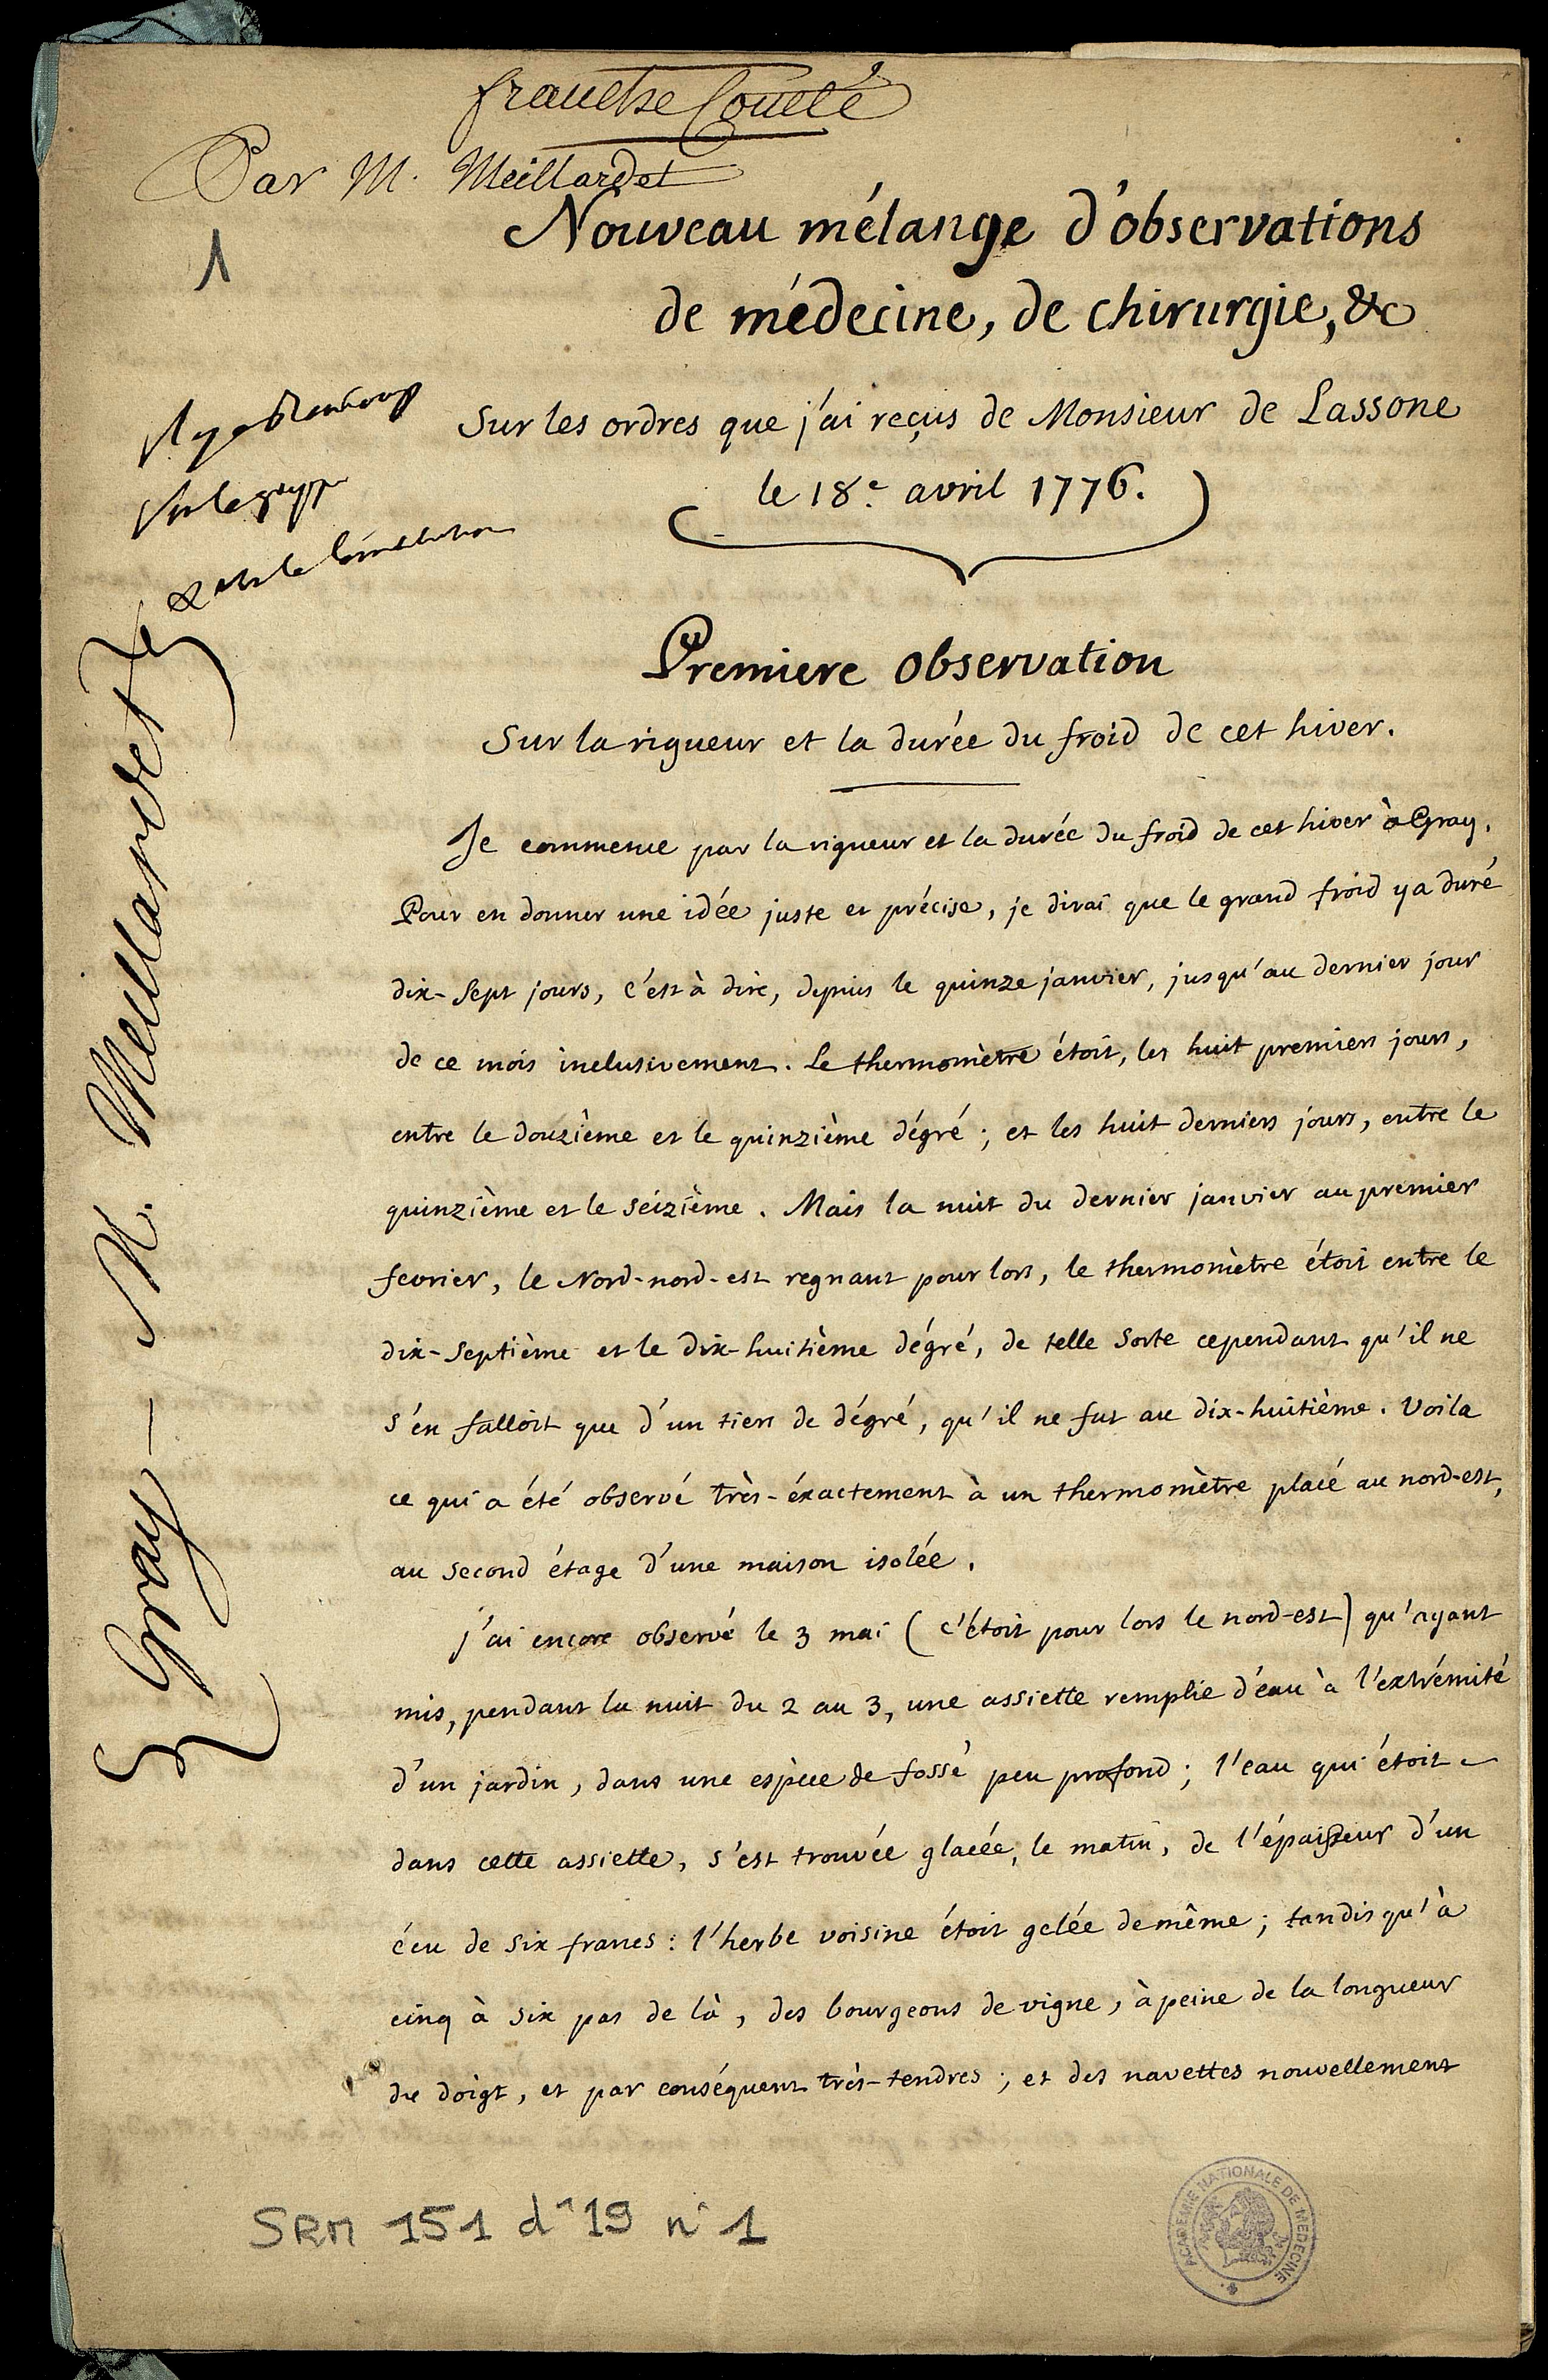 franche Comté
Par M. Meillardet
1
Nouveau mélange d'observations
de médecine, de chirurgie, &c
Sur les ordres que j'ai reçus de Monsieur de Lassone
le 18.e avril 1776.
Il y a beaucoup
sur la grippe
& sur la Constitution
Gray – M. Meillardet
Premiere observation
Sur la rigueur et la durée du froid de cet hiver.
Je commence par la rigueur et la durée du froid de cet hiver à Gray.
Pour en donner une idée juste et précise, je dirai que le grand froid y a duré
dix-sept jours, c'est à dire, depuis le quinze janvier, jusqu'au dernier jour
de ce mois inclusivement. Le thermomètre étoit, les huit premiers jours,
entre le douzième et le quinzième dégré ; et les huit derniers jours, entre le
quinzième et le seizième. Mais la nuit du dernier janvier au premier
fevrier, le Nord-nord-est regnant pour lors, le thermomètre étoit entre le
dix-septième et le dix-huitième dégré, de telle sorte cependant qu'il ne
s'en falloit que d'un tiers de dégré, qu'il ne fut au dix-huitième. Voila
ce qui a été observé très-éxactement à un thermomètre placé au nord-est,
au second étage d'une maison isolée.
j'ai encore observé le 3 mai (c'étoit pour lors le nord-est) qu'ayant
mis, pendant la nuit du 2 au 3, une assiette remplie d'eau à l'extrémité
d'un jardin, dans une espèce de fossé peu profond ; l'eau qui étoit
dans cette assiette, s'est trouvée glacée, le matin, de l'épaisseur d'un
écu de six francs : l'herbe voisine étoit gelée de même ; tandis qu'à
cinq à six pas de là, des bourgeons de vigne, à peine de la longueur
du doigt, et par conséquent très-tendres ; et des navettes nouvellement
SRM 151 d^r 19 n° 1
ACADEMIE NATIONALE DE MEDECINE